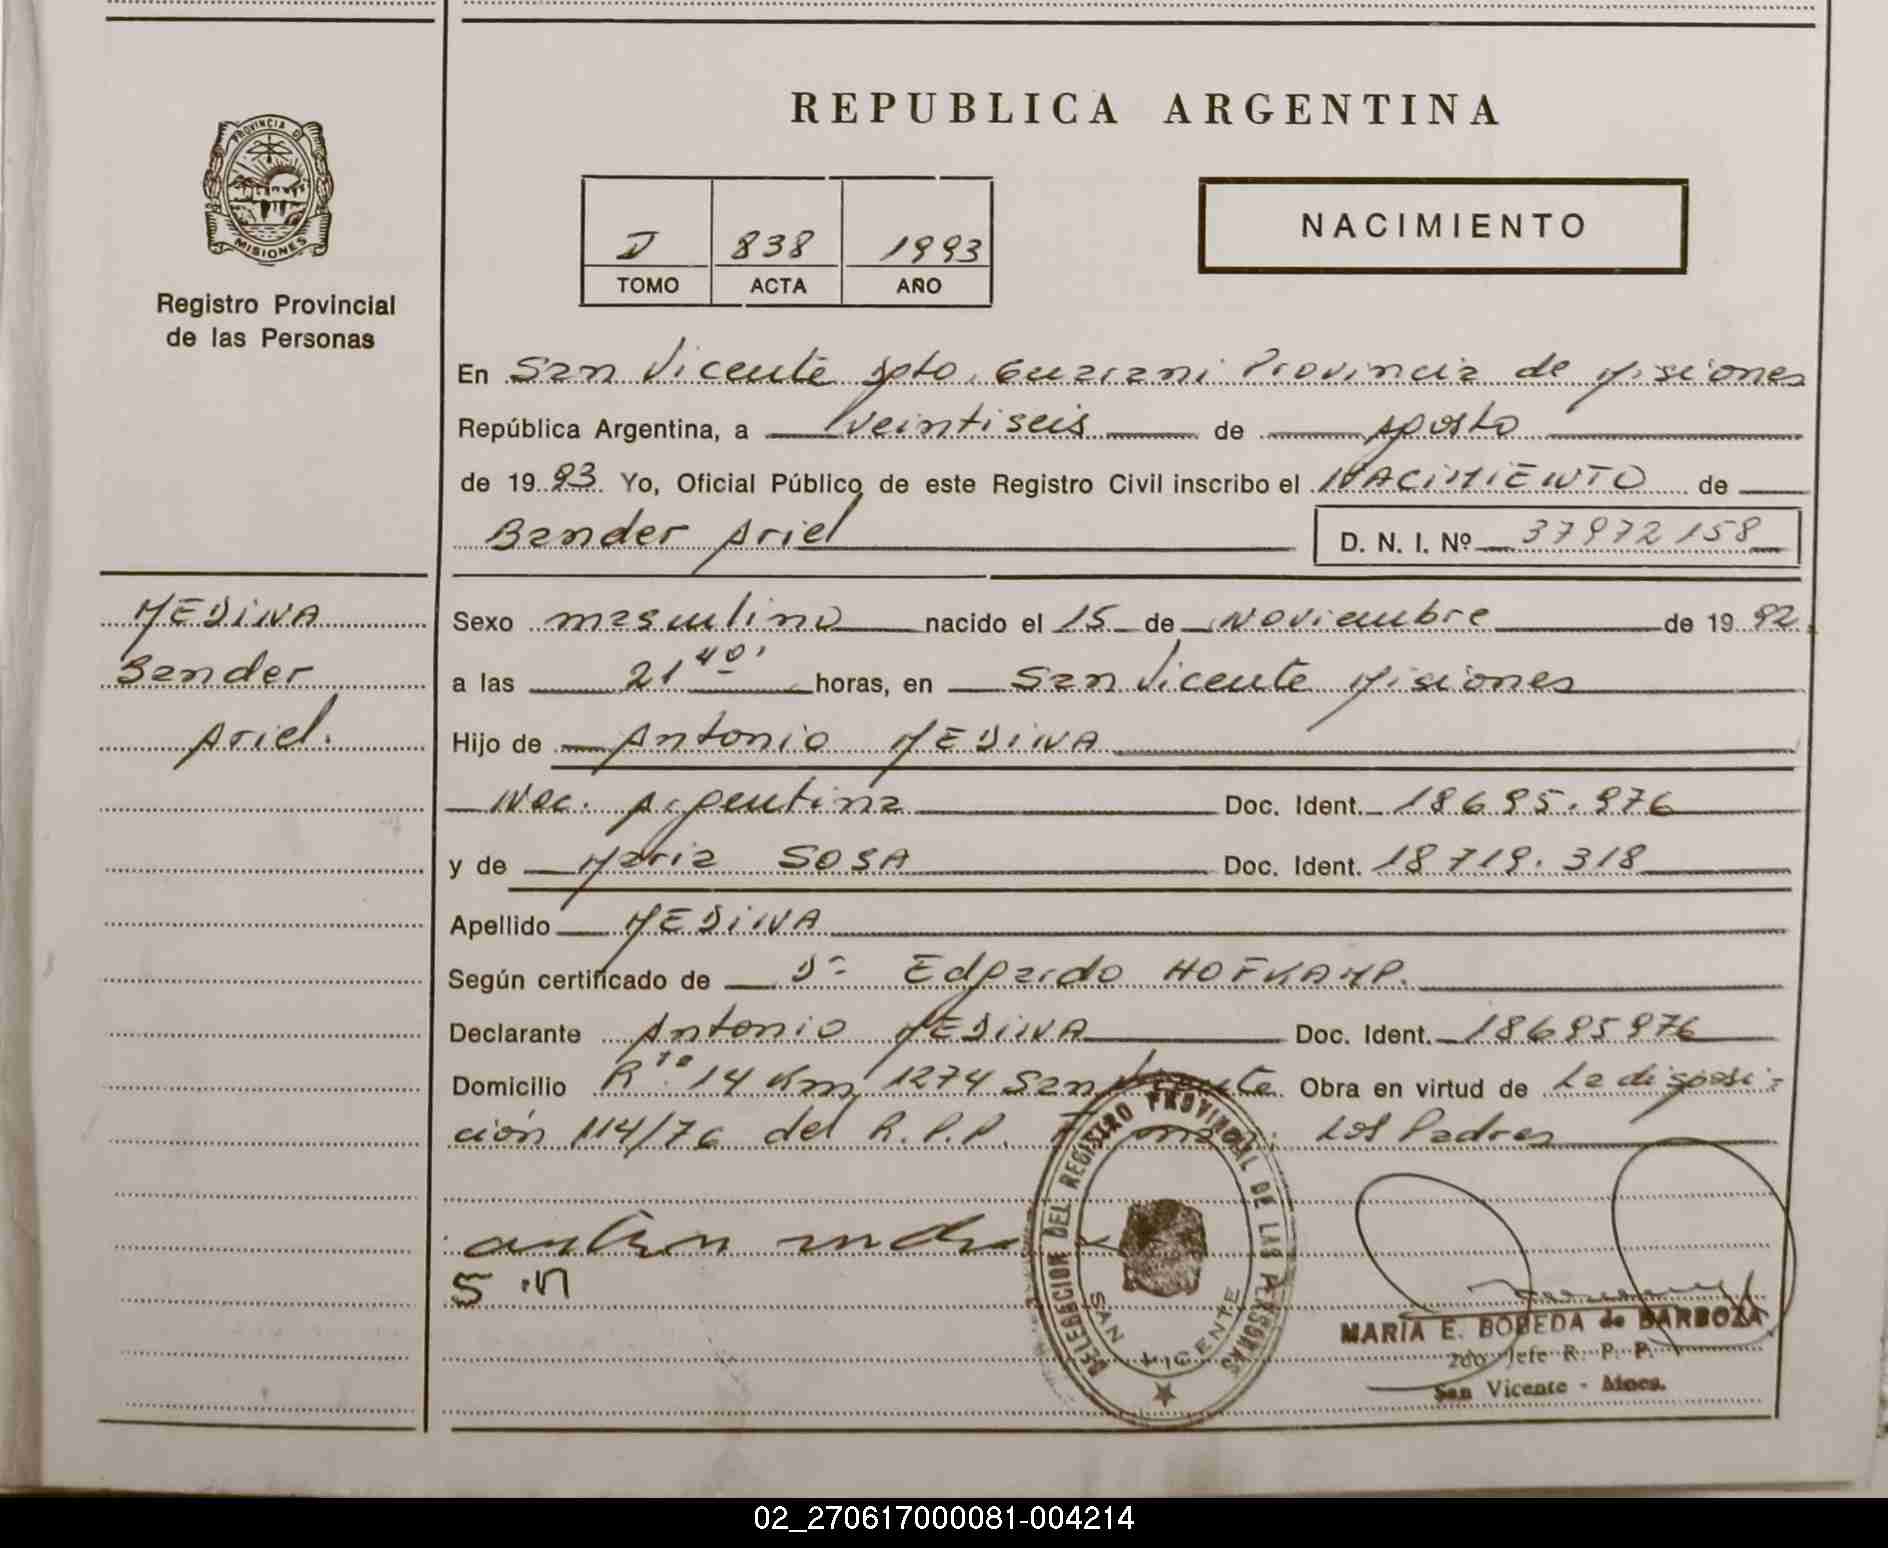 REPUBLICA ARGENTINA
PROVINCIA D
MISIONES
Registro Provincial
de las Personas
838 1993
TOMO ACTA AÑO
NACIMIENTO
En San Vicente Dpto. Guarani Provincia de Misiones
República Argentina, a Veintiseis de Agosto
de 1993. Yo, Oficial Público de este Registro Civil inscribo el NACIMIENTO de
Bander Ariel D. N. I. Nº 37972158
MEDINA
Bander
Ariel.
Sexo masculino nacido el 15 de Noviembre de 1992.
a las 21 40' horas, en San Vicente Misiones
Hijo de Antonio MEDINA
Nac. Argentina Doc. Ident. 18695.976
y de Maria SOSA Doc. Ident. 18719.318
Apellido MEDINA
Según certificado de Dr Edgardo HOFKAMP.
Declarante Antonio MEDINA Doc. Ident. 18695976
Domicilio R.ta 14 Km 1274 San Vicente Obra en virtud de La disposi-
ción 114/76 del R.P.P. Los Padres
DELEGACION DEL REGISTRO PROVINCIAL DE LAS PERSONAS
SAN VICENTE
MARIA E. BOBEDA de BARBOZA
2do Jefe R. P. P.
San Vicente - Mnes.
02_270617000081-004214